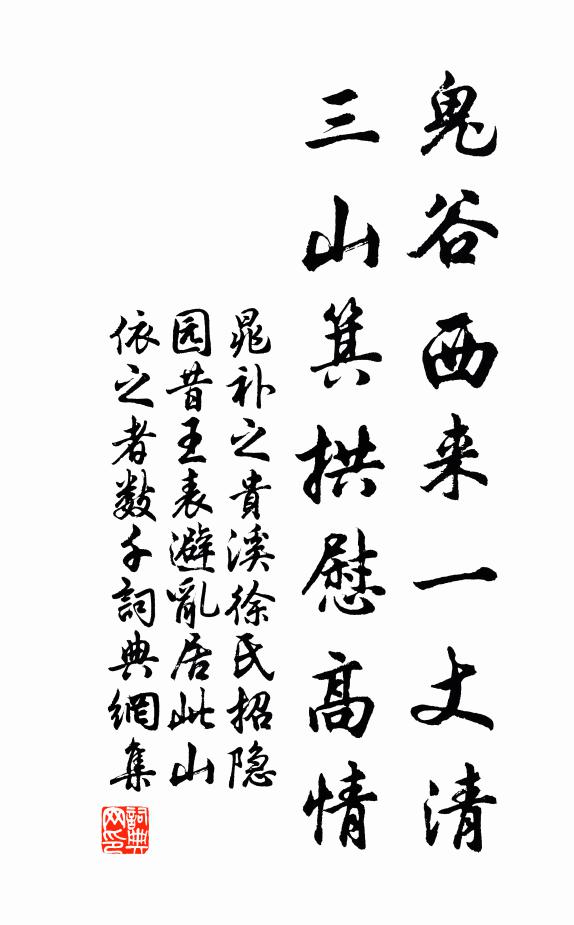 鬼谷西来一丈清
三山箕拱慰高情
晁补之貴溪徐民招隐
园昔王表避亂居此山
依之者数千詞典網集
詞典网印